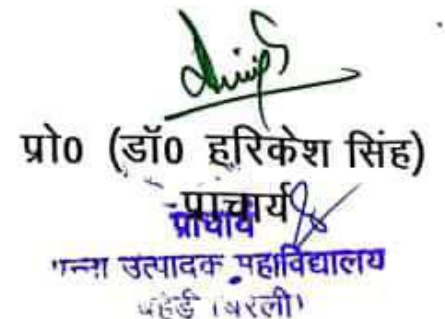 प्रो0 (डॉ0 हरिकेश सिंह)
प्राचार्य
प्राचार्य
गन्ना उत्पादक महाविद्यालय
बहेड़ी (बरेली)